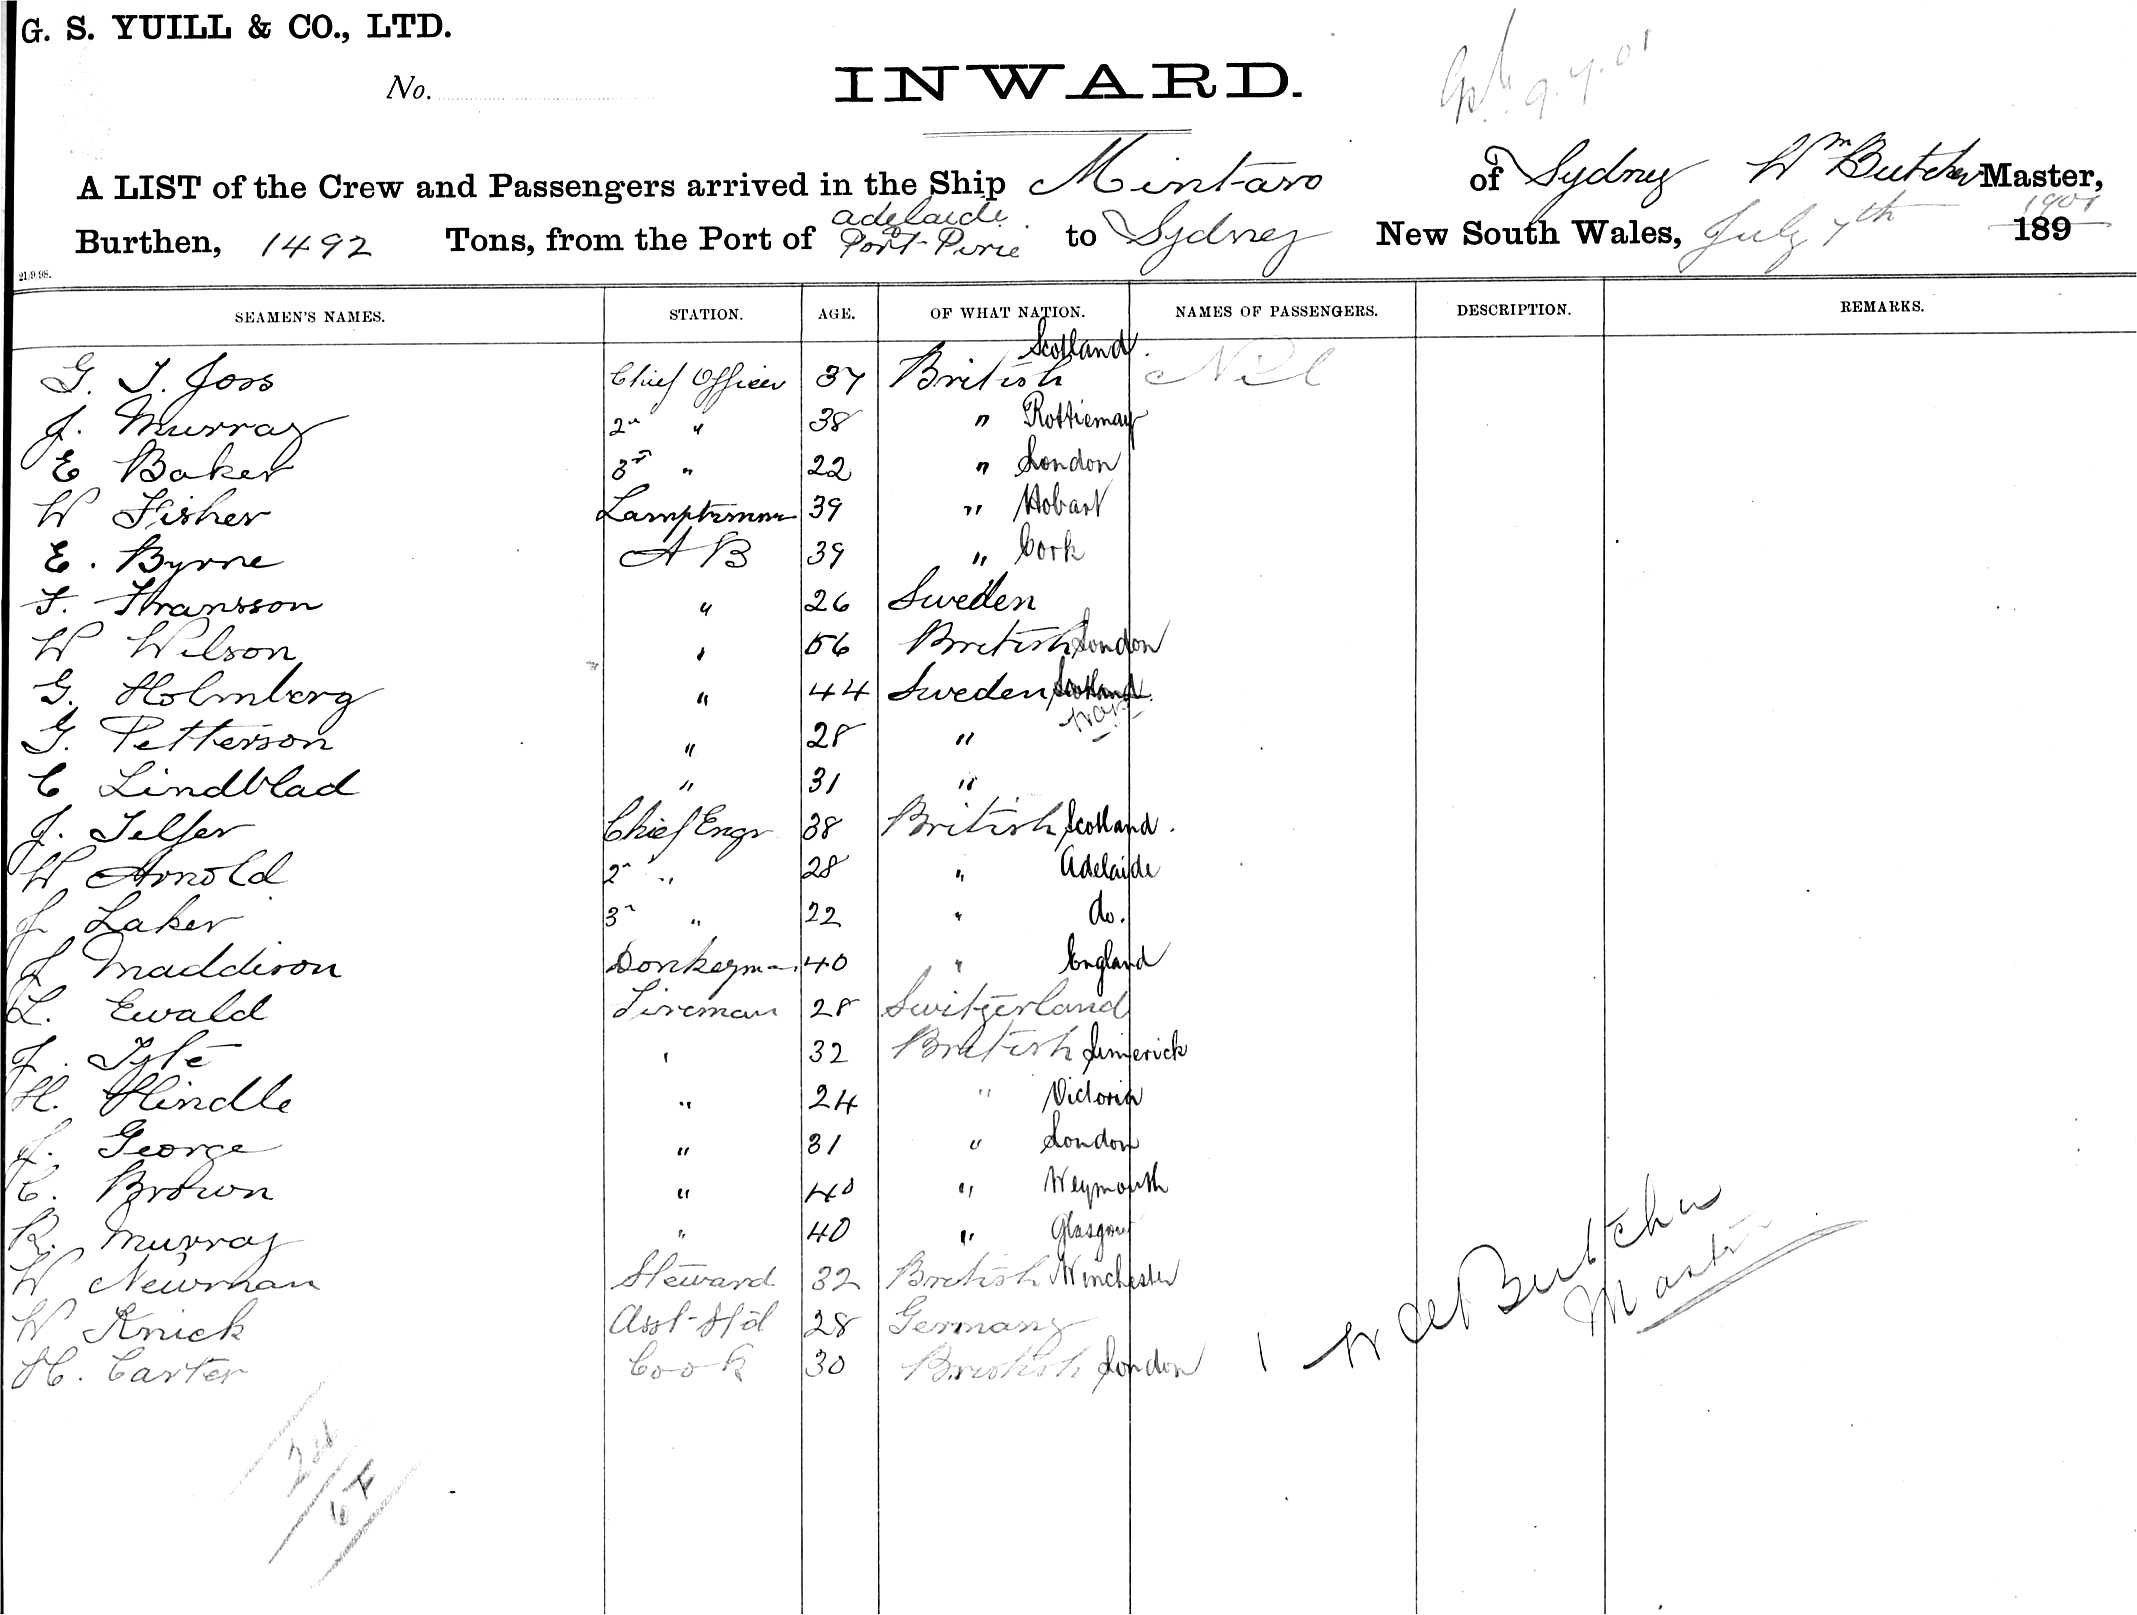 G. S. YUILL & CO., LTD.
No.
INWARD.
9.7.01
A LIST of the Crew and Passengers arrived in the Ship Mintaro of Sydney Wm Butcher Master,
Burthen, 1492 Tons, from the Port of Adelaide & Port Pirie to Sydney New South Wales, July 7th 189 1901
21/9/98.
SEAMEN'S NAMES. STATION. AGE. OF WHAT NATION. NAMES OF PASSENGERS. DESCRIPTION. REMARKS.
G. T. Joss Chief Officer 37 British Scotland. Nil
J. Murray 2nd " 38 " Rottiemay
E Baker 3rd " 22 " London
W Fisher Lamptrimmer 39 " Hobart
E. Byrne A B 39 " Cork
F. Fransson " 26 Sweden
W Wilson " 56 British London
G. Holmberg " 44 Sweden Scotland
G. Petterson " 28 "
C Lindblad " 31 "
J. Telfer Chief Engr 38 British Scotland.
W Arnold 2nd " 28 " Adelaide
J Laker 3rd " 22 " do.
J Maddison Donkeyman 40 " England
L. Ewald Fireman 28 Switzerland
J. 32 British Limerick
H. Hindle " 24 " Victoria
J. George " 31 " London
C. Brown " 40 " Weymouth
R. Murray " 40 " Glasgow
W Newman Steward 32 British Winchester
W Knick Asst-St'd 28 Germany
H. Carter Cook 30 British London
Butcher
Master